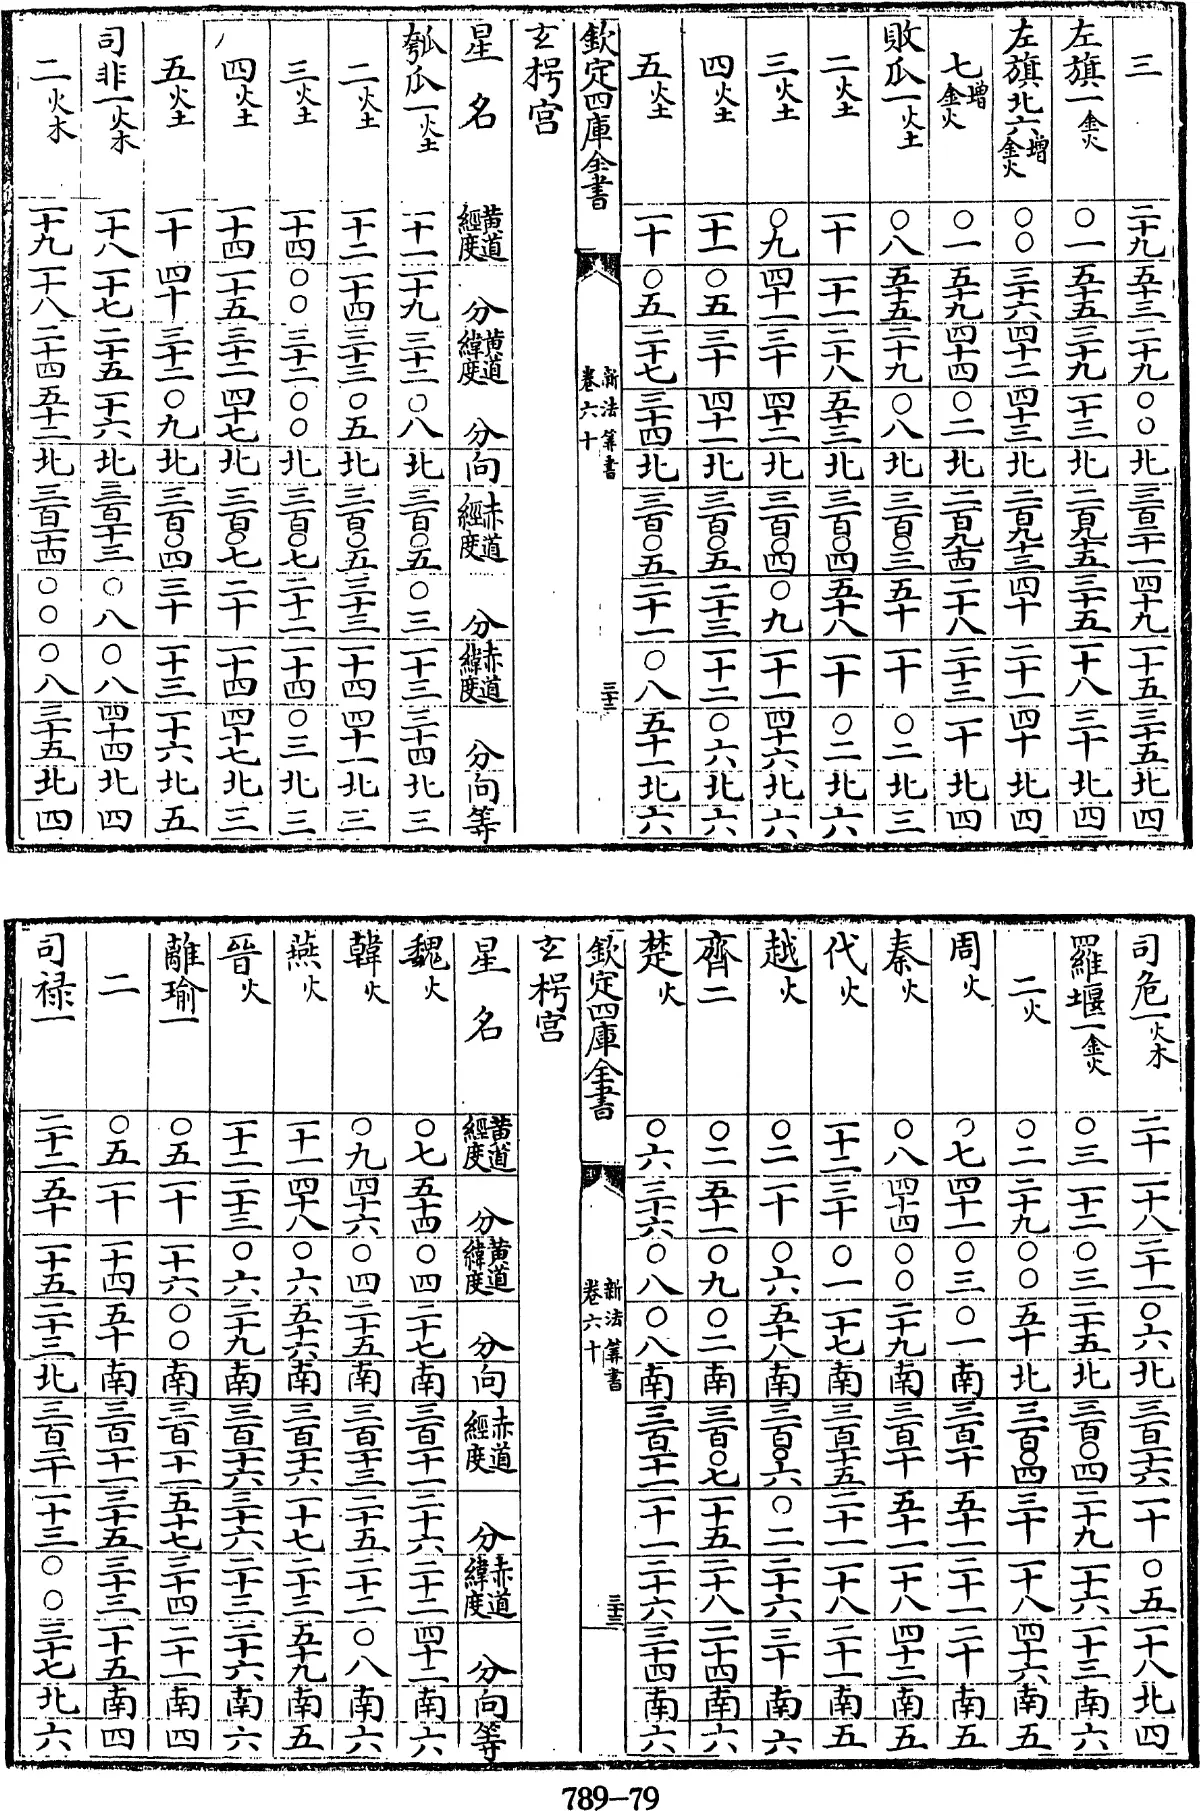 三 二十九 五十三 二十九 〇〇 北 三百二十一 四十九 一十五 三十五 北 四
左旗一金火 〇一 五十五 三十九 一十三 北 二百九十五 三十五 一十八 三十 北 四
左旗北六增金火 〇〇 三十六 四十二 四十三 北 二百九十三 四十 二十一 四十 北 四
七增金火 〇一 五十九 四十四 〇二 北 二百九十四 二十八 二十三 一十 北 四
敗瓜一火土 〇八 五十五 二十九 〇八 北 三百〇三 五十 一十 〇二 北 三
二火土 一十 一十一 二十八 五十三 北 三百〇四 五十八 一十 〇二 北 六
三火土 〇九 四十一 三十 四十二 北 三百〇四 〇九 一十一 四十六 北 六
四火土 一十一 〇五 三十 四十一 北 三百〇五 二十三 一十二 〇六 北 六
五火土 一十 〇五 二十七 三十四 北 三百〇五 二十一 〇八 五十一 北 六
欽定四庫全書 新法算書 卷六十 三十二
玄枵宮
星名 黃道經度 分 黃道緯度 分 向 赤道經度 分 赤道緯度 分 向 等
瓠瓜一火土 一十一 二十九 三十二 〇八 北 三百〇五 〇三 一十三 三十四 北 三
二火土 一十二 一十四 三十三 〇五 北 三百〇五 三十三 一十四 四十一 北 三
三火土 一十四 〇〇 三十二 〇〇 北 三百〇七 二十二 一十四 〇三 北 三
四火土 一十四 一十五 三十二 四十七 北 三百〇七 二十 一十四 四十七 北 三
五火土 一十 四十 三十二 〇九 北 三百〇四 三十 一十三 一十六 北 五
司非一火木 一十八 一十七 二十五 一十六 北 三百一十三 〇八 〇八 四十四 北 四
二火木 一十九 一十八 二十四 五十二 北 三百一十四 〇〇 〇八 三十五 北 四
司危一火木 二十 一十八 二十一 〇六 北 三百一十六 一十 〇五 一十八 北 四
羅堰一金火 〇三 一十二 〇三 二十五 北 三百〇四 二十九 一十六 一十三 南 六
二火 〇二 二十九 〇〇 五十 北 三百〇四 三十 一十八 四十六 南 五
周火 〇七 四十一 〇三 〇一 南 三百一十 五十一 二十一 二十 南 五
秦火 〇八 四十四 〇〇 二十九 南 三百一十 五十一 一十八 四十二 南 五
代火 一十二 三十 〇一 一十七 南 三百一十五 二十一 一十八 二十一 南 五
越火 〇二 一十 〇六 五十八 南 三百〇六 〇二 二十六 三十 南 六
齊二 〇二 五十一 〇九 〇二 南 三百〇七 一十五 二十八 二十四 南 六
楚火 〇六 三十六 〇八 〇八 南 三百一十一 一十一 二十六 三十四 南 六
欽定四庫全書 新法算書 卷六十 三十三
玄枵宮
星名 黃道經度 分 黃道緯度 分 向 赤道經度 分 赤道緯度 分 向 等
魏火 〇七 五十四 〇四 二十七 南 三百一十一 二十六 二十二 四十二 南 六
韓火 〇九 四十六 〇四 二十五 南 三百一十三 二十五 二十二 〇八 南 六
燕火 一十一 四十八 〇六 五十六 南 三百一十六 一十七 二十三 五十九 南 五
晉火 一十二 二十三 〇六 二十九 南 三百一十六 三十六 二十三 二十六 南 六
離瑜一 〇五 一十 一十六 〇〇 南 三百一十一 五十七 三十四 二十一 南 四
二 〇五 一十 一十四 五十 南 三百一十一 三十五 三十三 一十五 南 四
司祿一 二十二 五十 一十五 二十三 北 三百二十 一十三 〇〇 三十七 北 六
789–79